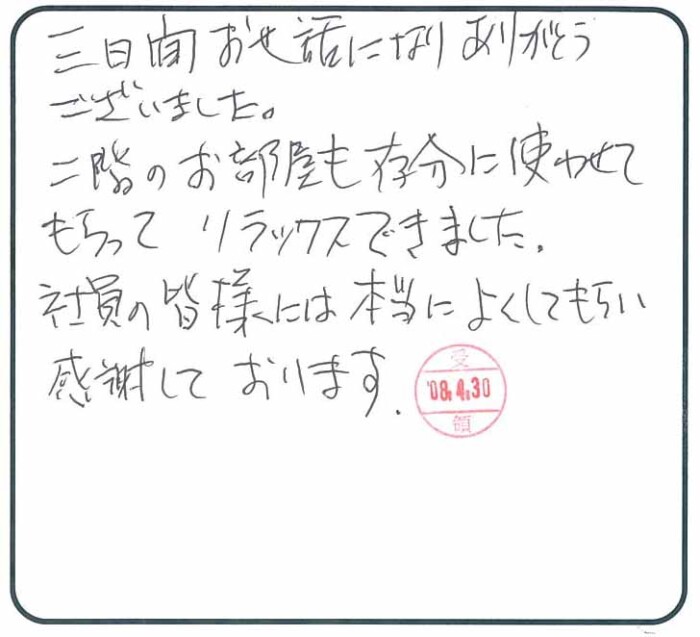 三日間お世話になりありがとう
ございました。
二階のお部屋も存分に使わせて
もらってリラックスできました.
社員の皆様には本当によくしてもらい
感謝しております.
受
'08.4.30
領